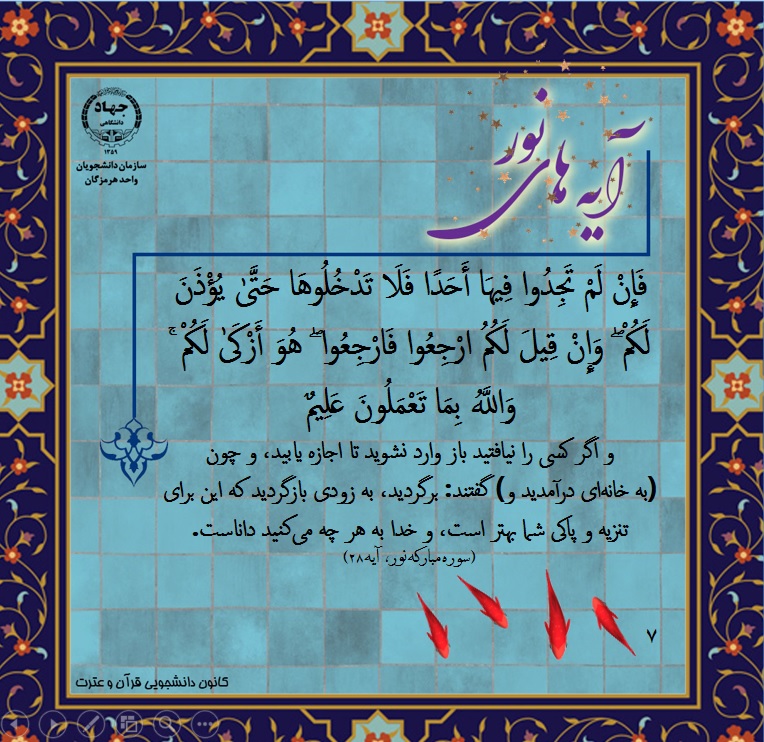 جهاد
دانشگاهی
۱۳۵۹
سازمان دانشجویان
واحد هرمزگان
آیه های نور
فَإِنْ لَمْ تَجِدُوا فِيهَا أَحَدًا فَلَا تَدْخُلُوهَا حَتَّىٰ يُؤْذَنَ
لَكُمْ ۖ وَإِنْ قِيلَ لَكُمُ ارْجِعُوا فَارْجِعُوا ۖ هُوَ أَزْكَىٰ لَكُمْ ۚ
وَاللَّهُ بِمَا تَعْمَلُونَ عَلِيمٌ
و اگر کسی را نیافتید باز وارد نشوید تا اجازه یابید، و چون
(به خانه‌ای درآمدید و) گفتند: برگردید، به زودی بازگردید که این برای
تنزیه و پاکی شما بهتر است، و خدا به هر چه می‌کنید داناست.
(سوره مبارکه نور، آیه ۲۸)
۷
کانون دانشجویی قرآن و عترت